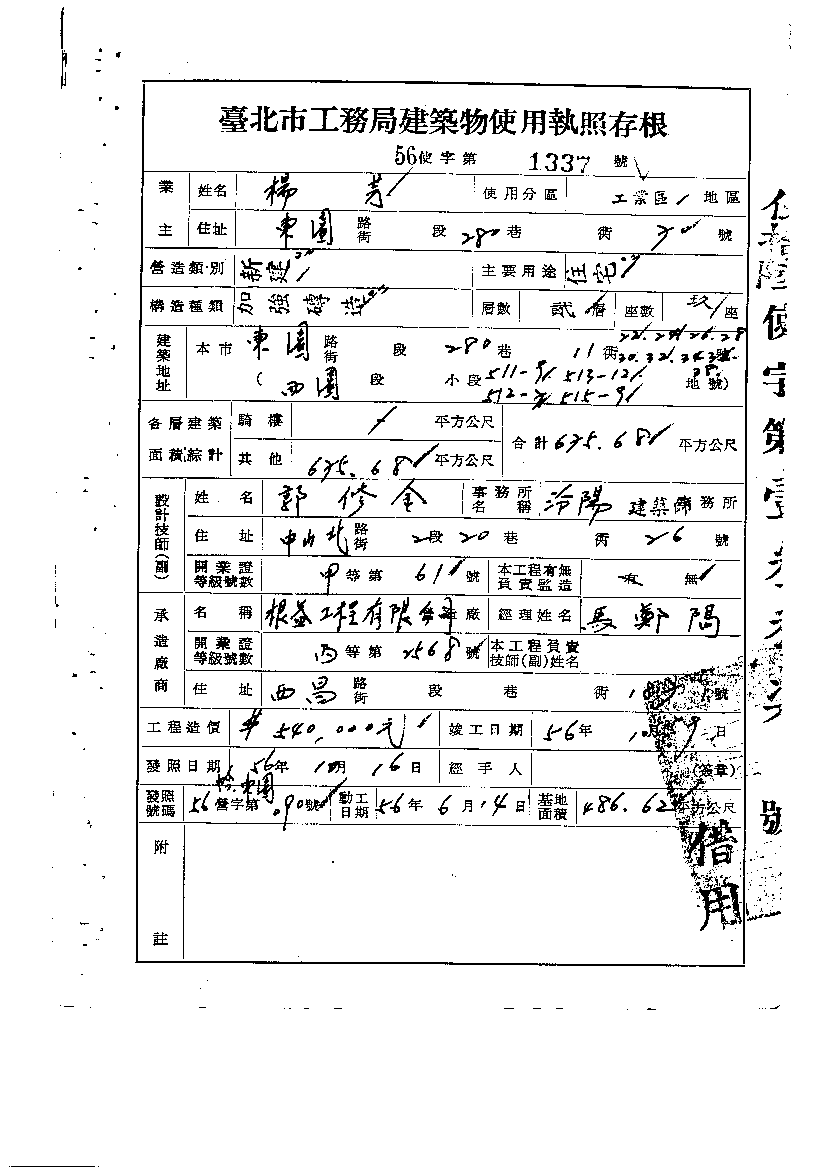 臺北市工務局建築物使用執照存根
56使字第 1337 號
業主 姓名 楊 芳 使用分區 工業區 地區
住址 東園 路街 段 280巷 街 號
營造類別 新建 主要用途 住宅
構造種類 加強磚造 層數 貳層 座數 玖座
建築地址 本市 東園 路街 段 280巷 11街 22.24.26.28 30.32.34.36. 38. 號
( 西園 段 小段 511-9 513-12 512- 515-9 地號)
各層建築面積綜計 騎樓 平方公尺 合計 675.68 平方公尺
其他 675.68 平方公尺
設計技師(副) 姓名 郭修金 事務所名稱 汾陽 建築師事務所
住址 中山北 路街 2段 20巷 街 26 號
開業證等級號數 甲等第 611 號 本工程有無負責監造 有 無
承造廠商 名稱 根益工程有限公司 造廠 經理姓名 馬鄭陽
開業證等級號數 丙等第 2568 號 本工程負責技師(副)姓名
住址 西昌 路街 段 巷 街 號
工程造價 $540,000元 竣工日期 56年 10月 9日
發照日期 56年 10月 16日 經手人 (簽章)
發照號碼 56營字第 號 動工日期 56年 6月 14日 基地面積 486.62 平方公尺
附註
借用
伍拾陸使字第壹 號